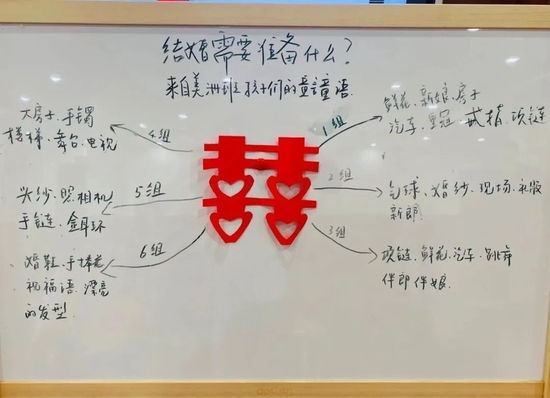 结婚需要准备什么?
来自美洲班孩子们的童言童语
1组
鲜花、新娘、房子
汽车、皇冠、戒指、项链
2组
气球、婚纱、现场、礼服
新郎
3组
项链、鲜花、汽车、跳舞
伴郎伴娘
4组
大房子、手镯
楼梯、舞台、电视
5组
头纱、照相机
手链、金耳环
6组
婚鞋、手捧花
祝福语、漂亮
的发型
囍